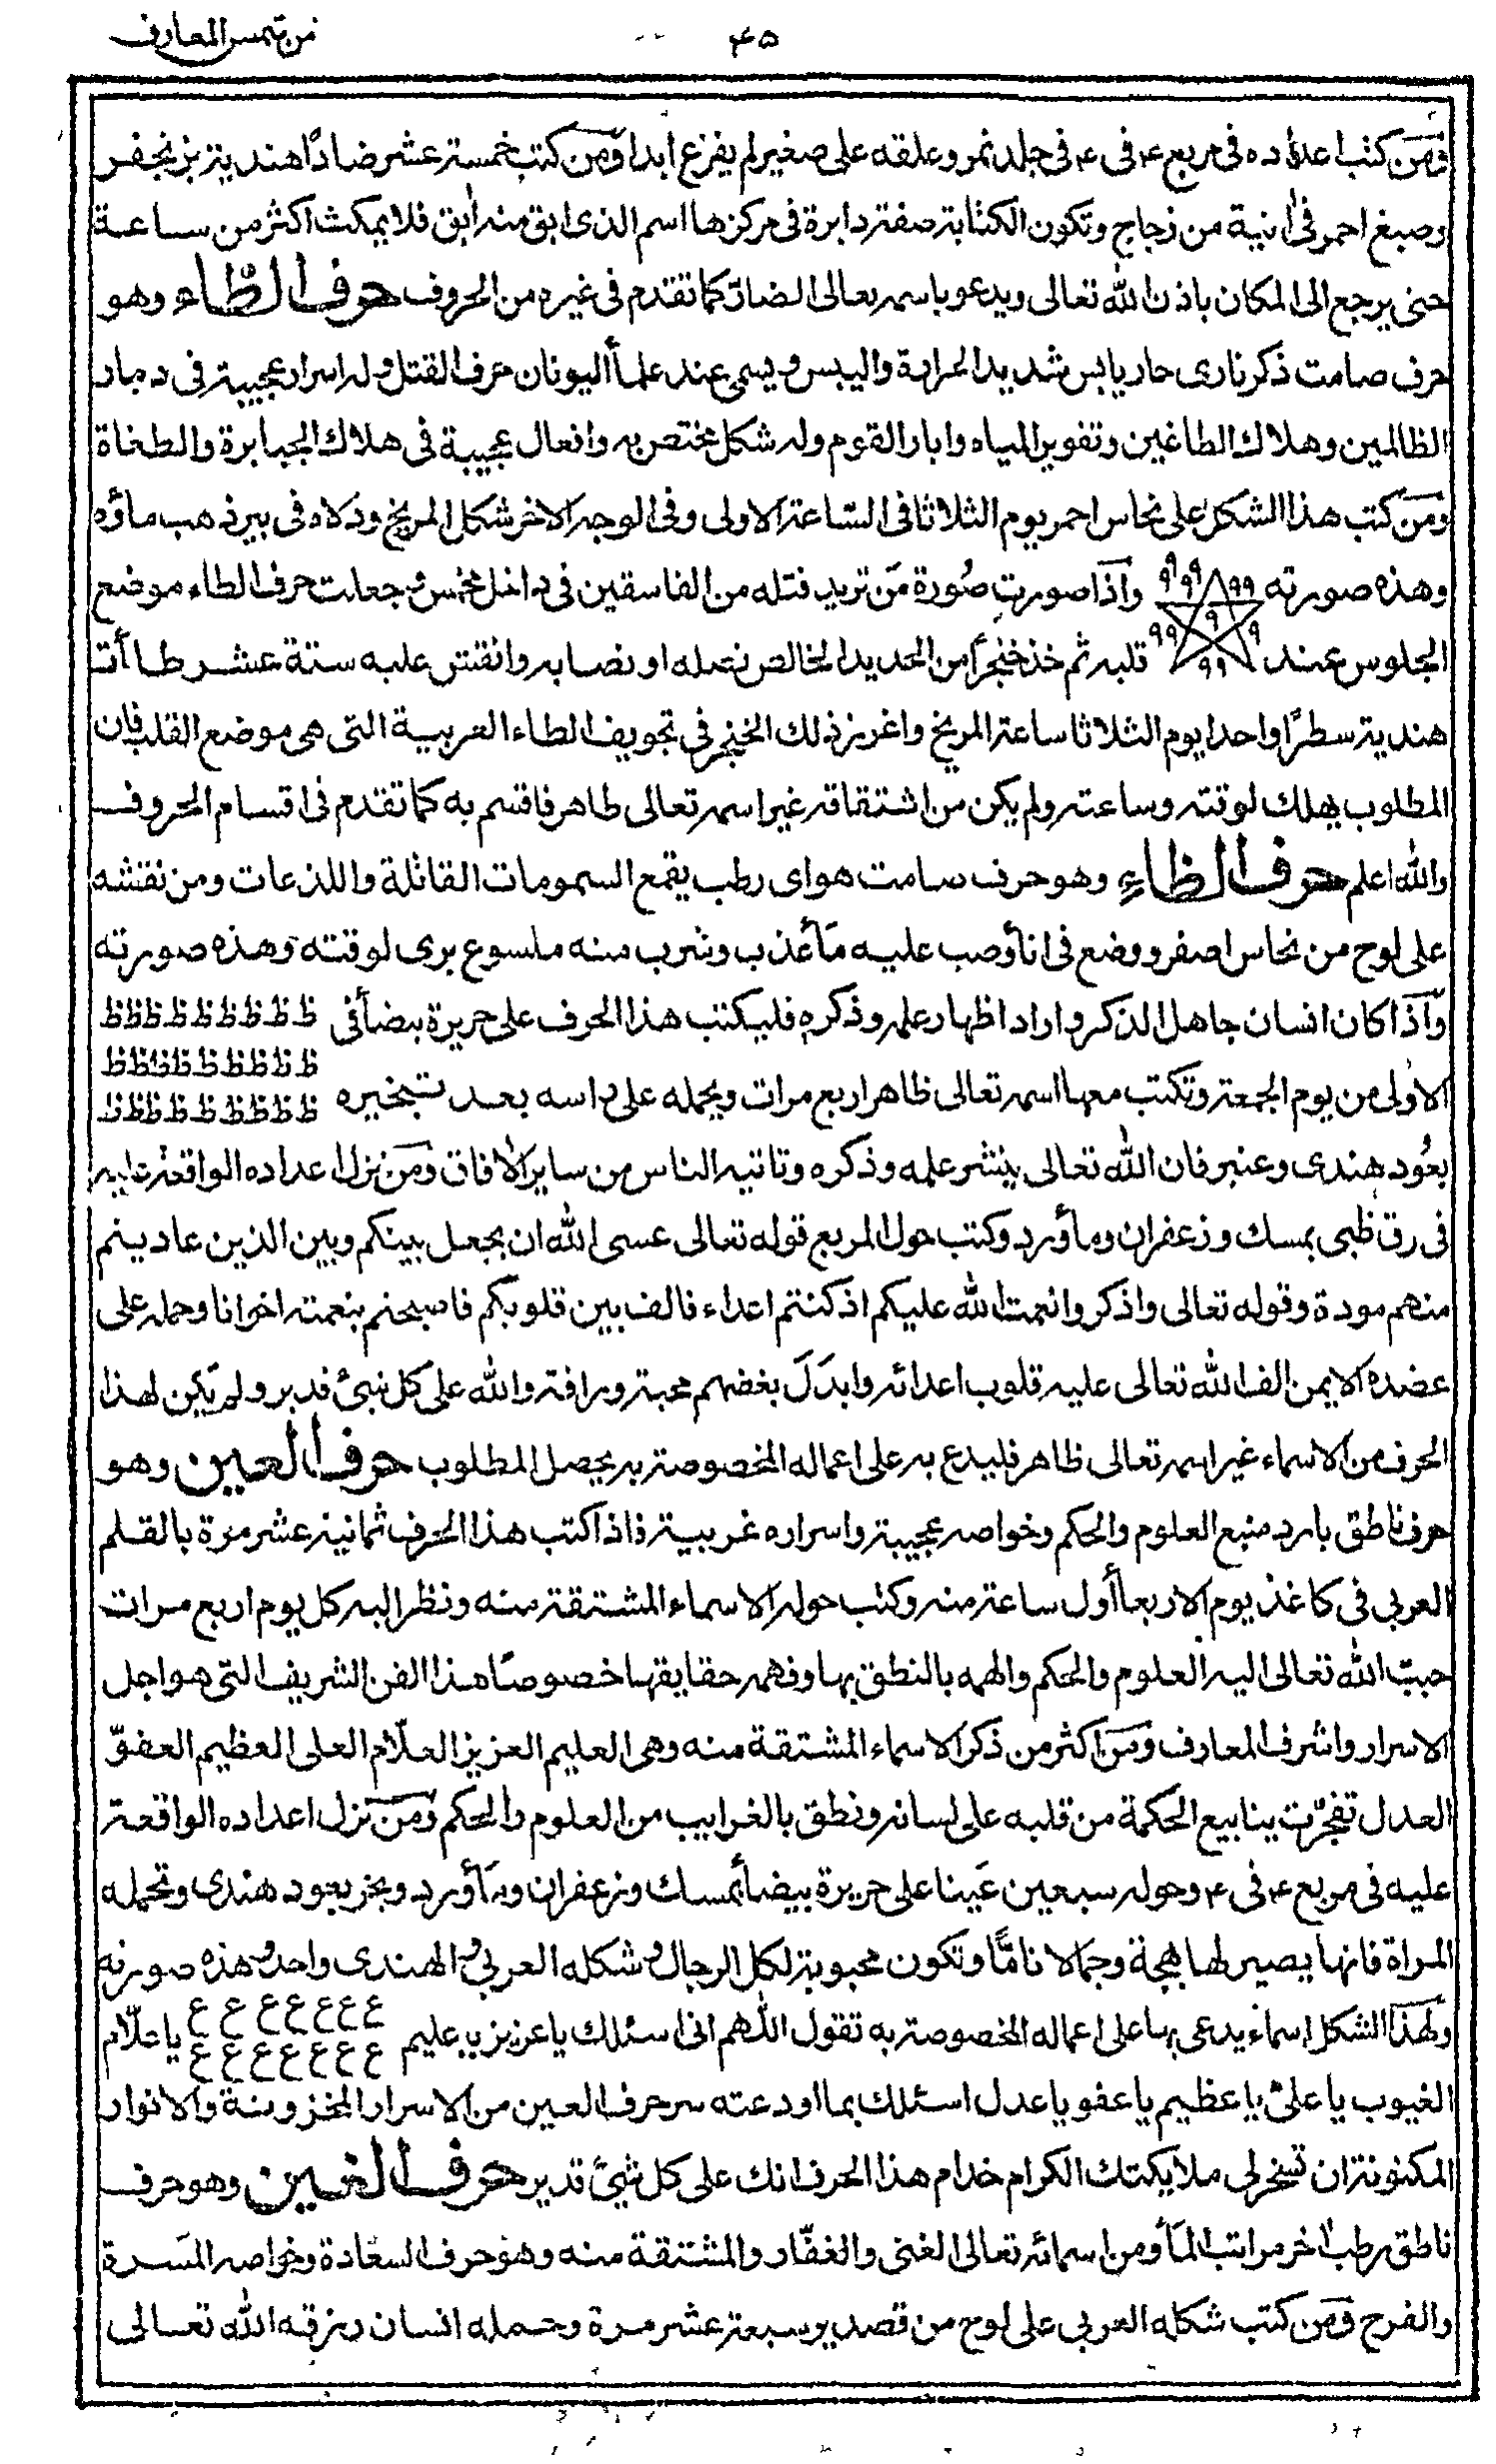 من شمس المعارف
٤٥
ومن كتب اعداده فى مربع ٤ فى ٤ فى جلد نمر وعلقه على صغير لم يفزع ابدا ومن كتب خمسة عشر ضادًا هندية بزنجفر
وصبغ احمر فى انية من زجاج وتكون الكتابة صفة دايرة فى مركزها اسم الذى ابق منه ابق فلا يمكث اكثر من ساعة
حتى يرجع الى المكان باذن الله تعالى ويدعو باسمه تعالى الضارّ كما تقدم فى غيره من الحروف حرف الطاء وهو
حرف صامت ذكر نارى حار يابس شديد الحرارة واليبس ويسمى عند علمأ اليونان حرف القتل وله اسرار عجيبة فى دمار
الظالمين وهلاك الطاغين وتغوير المياه وابار القوم وله شكل مختص به وافعال عجيبة فى هلاك الجبابرة والطغاة
ومن كتب هذا الشكل على نحاس احمر يوم الثلاثا فى السّاعة الاولى وفى الوجه الاخر شكل المريخ ودلاه فى بير ذهب ماؤه
وهذه صورته ٩٩ ٩٩ ٩ ٩٩ ٩ ٩٩ واذا صورت صُورة مَن تريد قتله من الفاسقين فى داخل مخمس وجعلت حرف الطاء موضع
الجلوس عند قلبه ثم خذ خنجرًا من الحديد الخالص نصله او نصابه وانقش عليه ستة عشر طاأت
هندية سطرًا واحدا يوم الثلاثا ساعة المريخ واغرز ذلك الخنجر فى تجويف الطاء العربية التى هى موضع القلب فان
المطلوب يهلك لوقته وساعته ولم يكن من اشتقاقه غير اسمه تعالى طاهر فاقسم به كما تقدم فى اقسام الحروف
والله اعلم حرف الظاء وهو حرف صامت هواى رطب يقمع السمومات القاتلة واللذعات ومن نقشه
على لوح من نحاس اصفر ووضع فى انأ وصب عليه مَأ عذب وشرب منه ملسوع برى لوقته وهذه صورته
واذا كان انسان جاهل الذكر واراد اظهار علمه وذكره فليكتب هذا الحرف على حريرة بيضأ فى ظ ظ ظ ظ ظ ظ ظ ظ ظ
ظ ظ ظ ظ ظ ظ ظ ظ ظ
الاولى من يوم الجمعة وتكتب معها اسمه تعالى ظاهر اربع مرات ويحمله على راسه بعد تبخيره ظ ظ ظ ظ ظ ظ ظ ظ ظ
بعُود هندى وعنبر فان الله تعالى ينشر علمه وذكره وتاتيه الناس من ساير الافاق ومن نزل اعداده الواقعة عليه
فى رق ظبى بمسك وزعفران ومأورد وكتب حول المربع قوله تعالى عسى الله ان يجعل بينكم وبين الذين عاديتم
منهم مودة وقوله تعالى واذكروا نعمت الله عليكم اذ كنتم اعداء فالف بين قلوبكم فاصبحتم بنعمته اخوانا وحمله على
عضده الايمن الف الله تعالى عليه قلوب اعدائه وابدَلَ بغضهم محبة ورافة والله على كل شئ قدير ولم يَكن لهذا
الحرف من الاسماء غير اسمه تعالى ظاهر فليدع به على اعماله المخصوصة به يحصل المطلوب حرف العين وهو
حرف ناطق بارد منبع العلوم والحكم وخواصه عجيبة واسراره غريبة فاذا كتب هذا الحرف ثمانية عشر مرة بالقلم
العربى فى كاغذ يوم الاربعا أول ساعة منه وكتب حوله الاسماء المشتقة منه ونظر اليه كل يوم اربع مرات
حببّ الله تعالى اليه العلوم والحكم والهمه بالنطق بها وفهمه حقايقها خصوصًا هذا الفن الشريف التى هو اجل
الاسرار واشرف المعارف ومن اكثر من ذكر الاسماء المشتقة منه وهى العليم العزيز العلّام العلى العظيم العفوّ
العدل تفجّرت ينابيع الحكمة من قلبه على لسانه ونطق بالغرايب من العلوم والحكم ومن نزل اعداده الواقعة
عليه فى مربع ٤ فى ٤ وحوله سبعين عَينا على حريرة بيضأ بمسك وزعفران ومَأورد وبخر بعود هندى وتحمله
المراة فانها يصير لها بهجة وجمالا تامًّا وتكون محبوبة لكل الرجال وشكله العربى والهندى واحد وهذه صورته
ولهذا الشكل اسماء يدعى بها على اعماله المخصوصة به تقول اللهم انى اسئلك يا عزيز يا عليم ع ع ع ع ع ع ع يا علّام
ع ع ع ع ع ع ع
الغيوب يا علىّ يا عظيم يا عفو يا عدل اسئلك بما اودعته سر حرف العين من الاسرار المخزونة والانوار
المكنونة ان تسخر لى ملايكتك الكرام خدام هذا الحرف انك على كل شئ قدير حرف الغين وهو حرف
ناطق رطب اخر مراتب المأ ومن اسمائه تعالى الغنى والغفّار والمشتقة منه وهو حرف السعَادة وخواصه المسَرة
والفرح ومن كتب شكله العربى على لوح من قصدير سبعة عشر مرة وحمله انسان رزقه الله تعالى